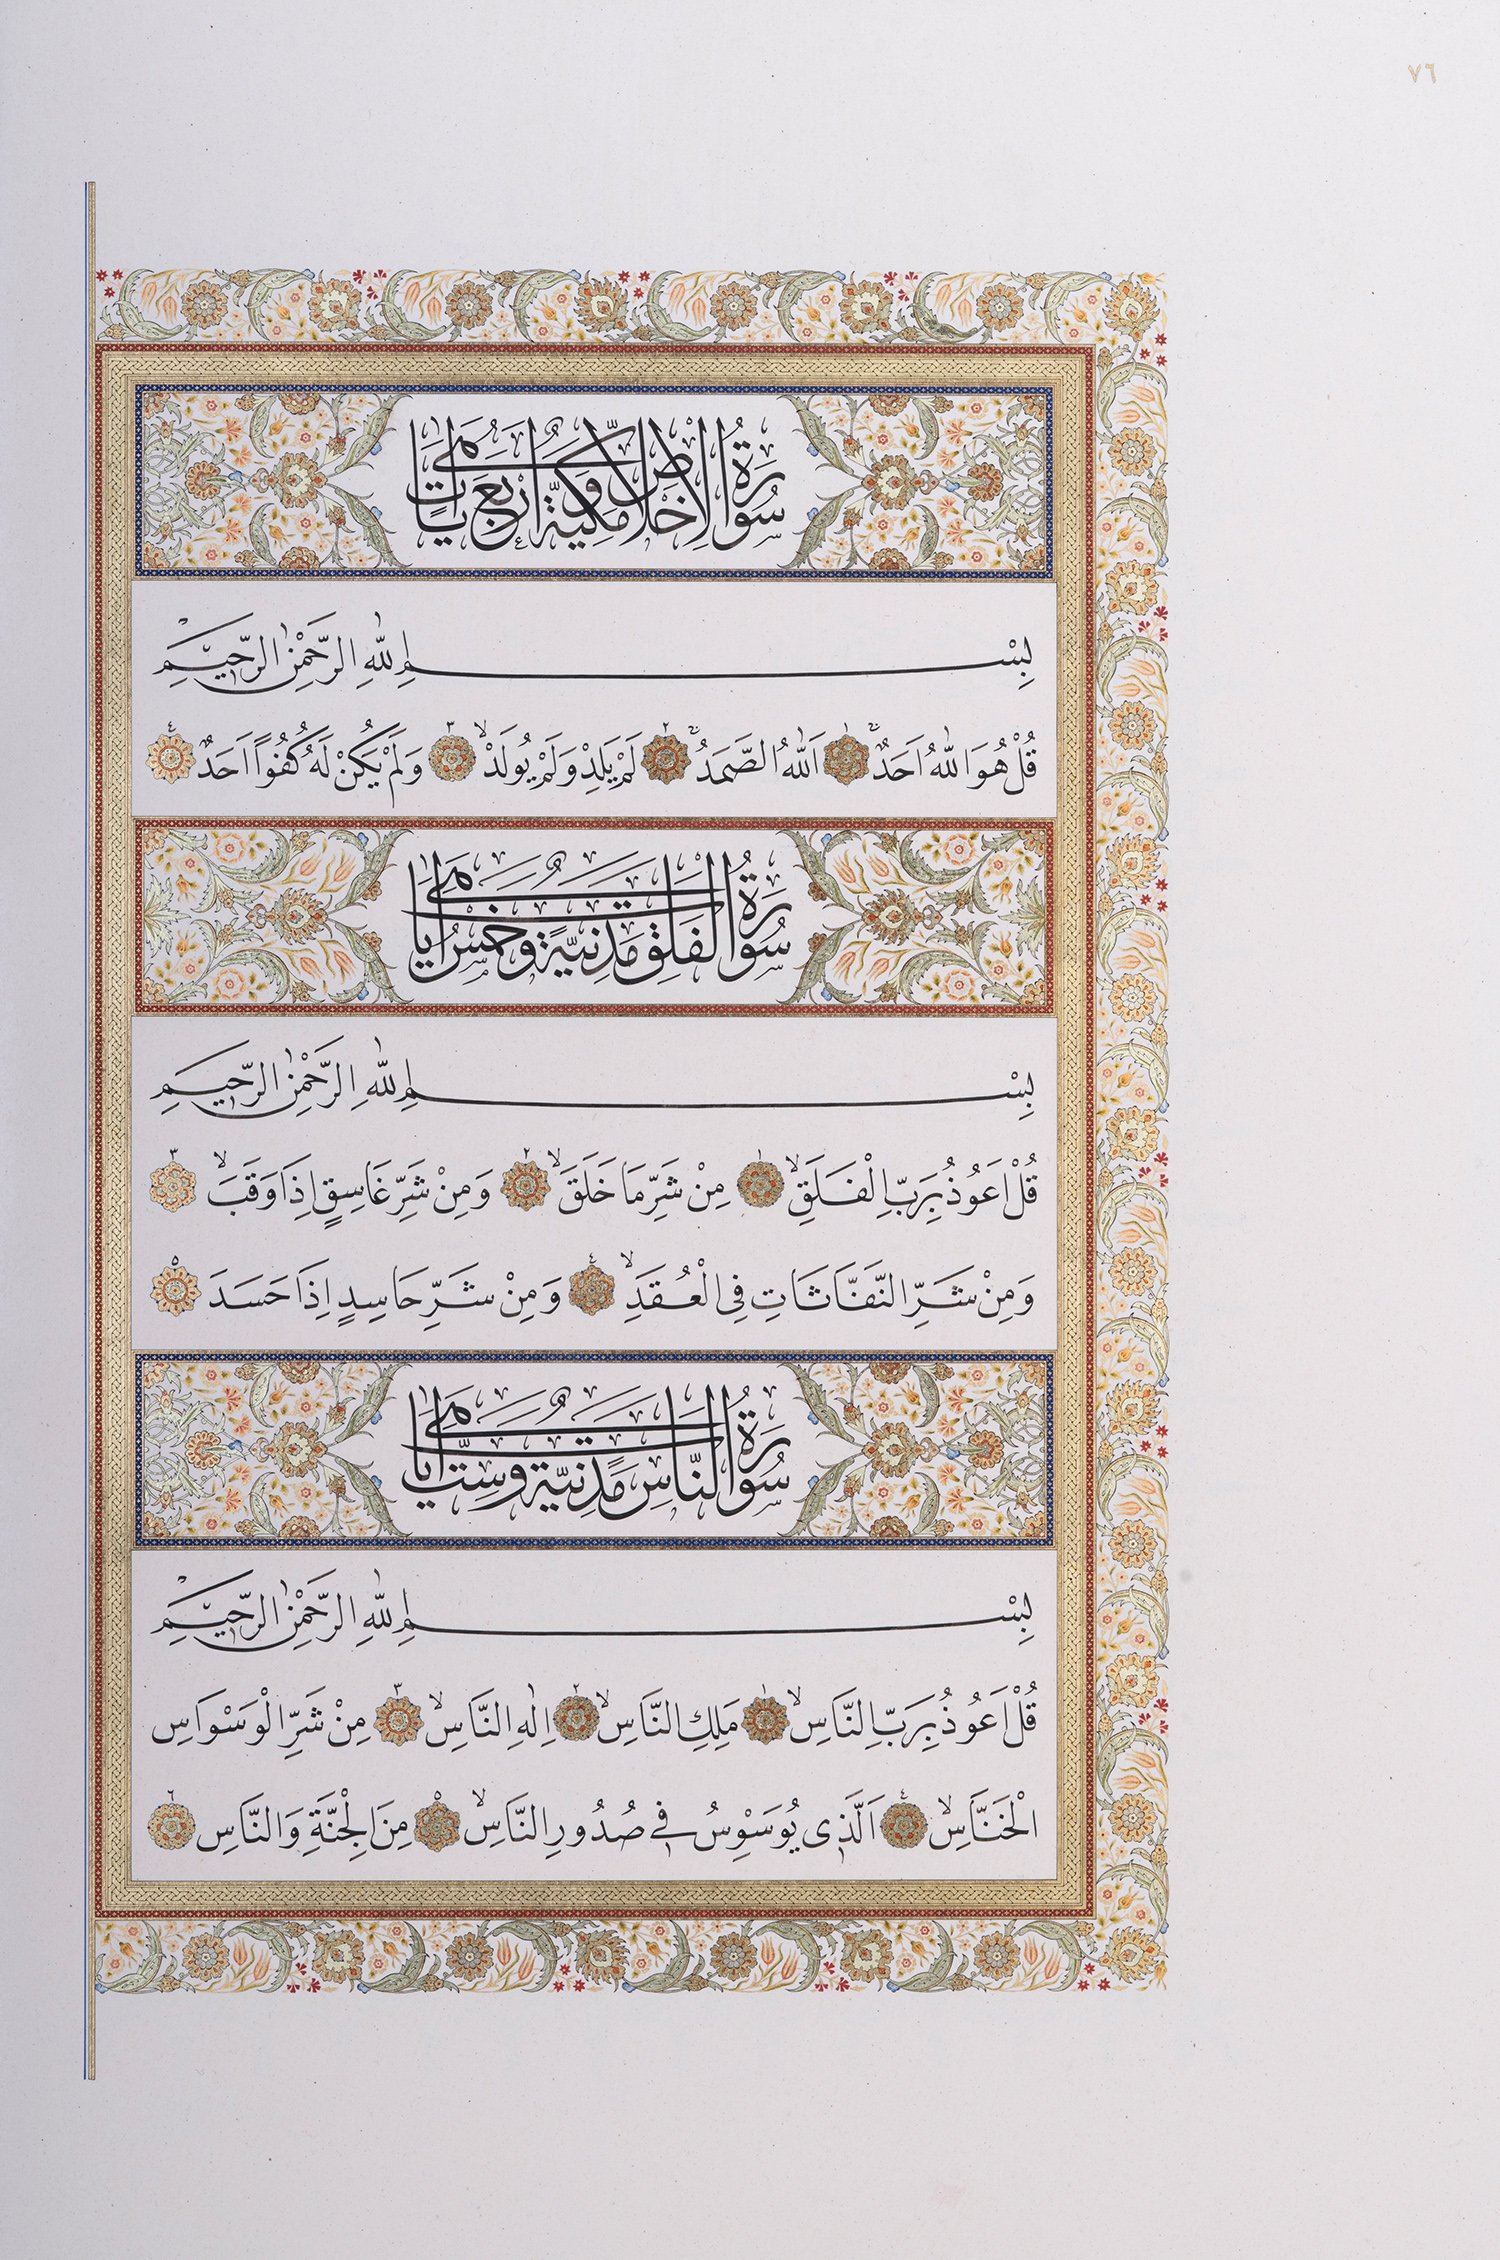 ٧٦
سُورَةُ الْاِخْلَاصِ مَكِّيَّةٌ وَهِيَ اَرْبَعُ اٰيَاتٍ
بِسْمِ اللّٰهِ الرَّحْمٰنِ الرَّحِيمِ
قُلْ هُوَ اللّٰهُ اَحَدٌ ١ اَللّٰهُ الصَّمَدُ ٢ لَمْ يَلِدْ وَلَمْ يُولَدْ ٣ وَلَمْ يَكُنْ لَهُ كُفُوًا اَحَدٌ ٤
سُورَةُ الْفَلَقِ مَدَنِيَّةٌ وَهِيَ خَمْسُ اٰيَاتٍ
بِسْمِ اللّٰهِ الرَّحْمٰنِ الرَّحِيمِ
قُلْ اَعُوذُ بِرَبِّ الْفَلَقِ ١ مِنْ شَرِّ مَا خَلَقَ ٢ وَمِنْ شَرِّ غَاسِقٍ اِذَا وَقَبَ ٣
وَمِنْ شَرِّ النَّفَّاثَاتِ فِى الْعُقَدِ ٤ وَمِنْ شَرِّ حَاسِدٍ اِذَا حَسَدَ ٥
سُورَةُ النَّاسِ مَدَنِيَّةٌ وَهِيَ سِتُّ اٰيَاتٍ
بِسْمِ اللّٰهِ الرَّحْمٰنِ الرَّحِيمِ
قُلْ اَعُوذُ بِرَبِّ النَّاسِ ١ مَلِكِ النَّاسِ ٢ اِلٰهِ النَّاسِ ٣ مِنْ شَرِّ الْوَسْوَاسِ
الْخَنَّاسِ ٤ اَلَّذِى يُوَسْوِسُ فِى صُدُورِ النَّاسِ ٥ مِنَ الْجِنَّةِ وَالنَّاسِ ٦